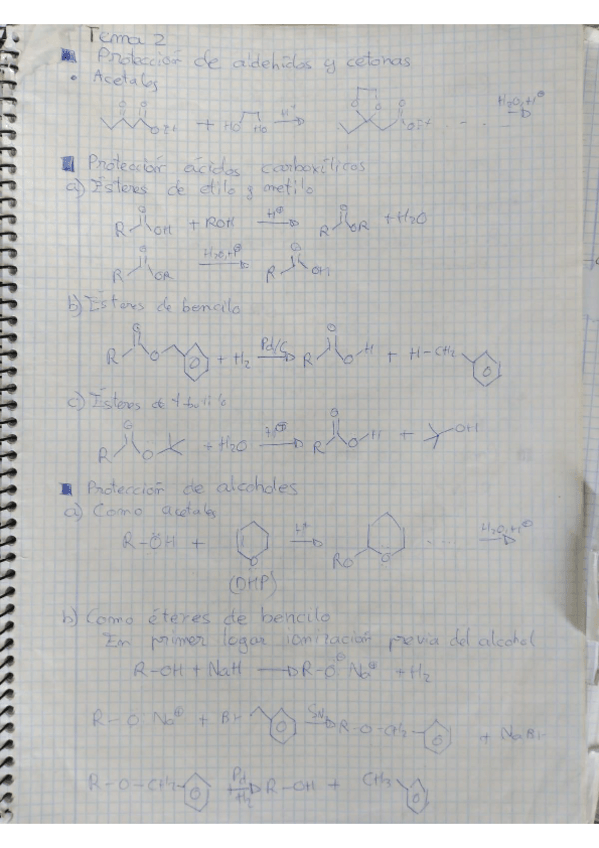 Tema 2
Protección de aldehidos y cetonas
• Acetales
O O OEt + HO HO H⁺ O O O OEt ... H₂O, H⊕
Protección ácidos carboxílicos
a) Ésteres de etilo y metilo
R O OH + ROH H⊕ R O OR + H₂O
R O OR H₂O, H⊕ R O OH
b) Ésteres de bencilo
R O O + H₂ Pd/C R O O H + H-CH₂
c) Ésteres de t-butilo
R O O + H₂O H⊕ R O O H + OH
Protección de alcoholes
a) Como acetales
R-ÖH + O H⁺ RO O ... H₂O, H⊕
(DHP)
b) Como éteres de bencilo
En primer lugar ionización previa del alcohol
R-OH + NaH R-O⊖ Na⊕ + H₂
R-O Na⊕ + Br SN R-O-CH₂ + NaBr
R-O-CH₂ Pd H₂ R-OH + CH₃